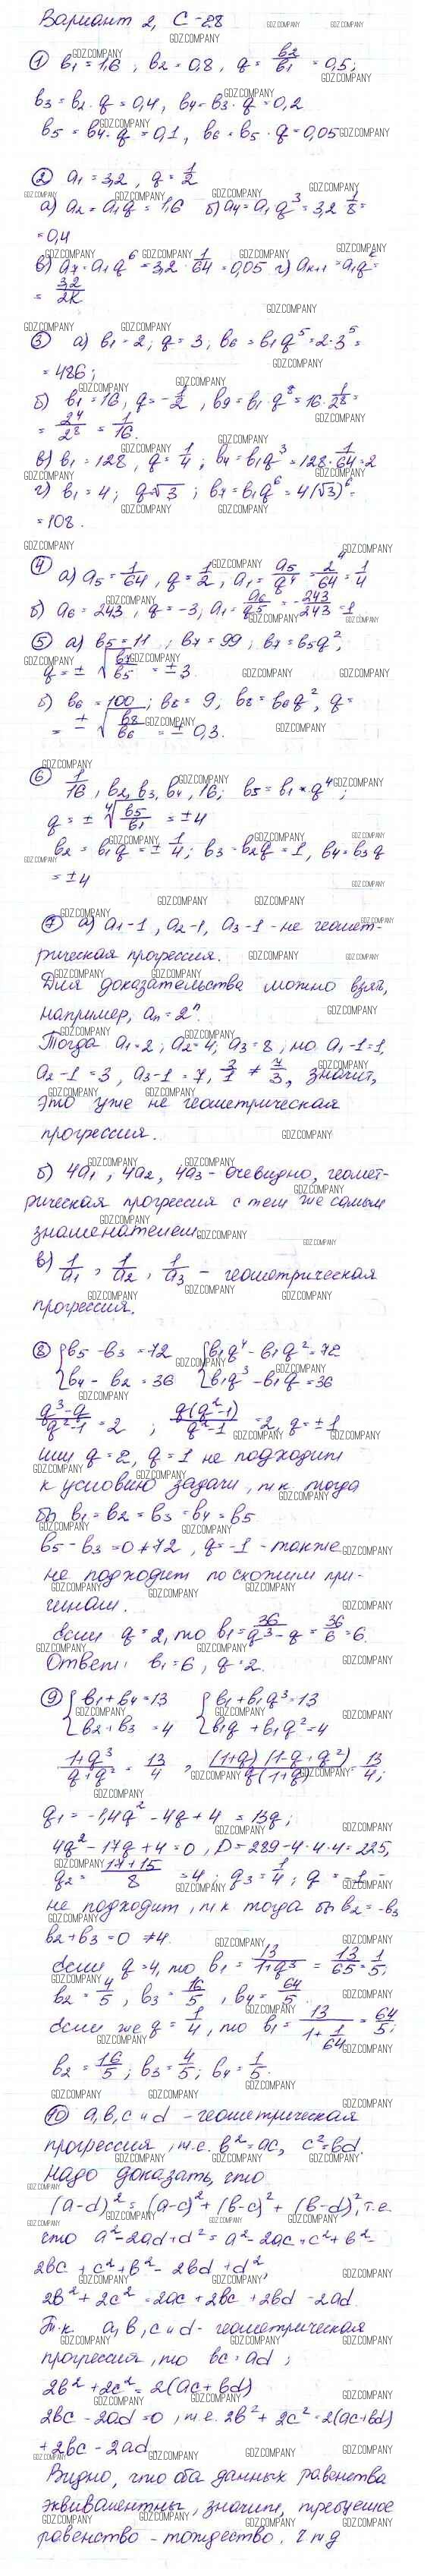 Вариант 2, С-28
① b₁ = 1,6, b₂ = 0,8, q = b₂/b₁ = 0,5;
b₃ = b₂·q = 0,4, b₄ = b₃·q = 0,2
b₅ = b₄·q = 0,1, b₆ = b₅·q = 0,05
② a₁ = 3,2, q = 1/2
а) a₂ = a₁q = 1,6 б) a₄ = a₁q³ = 3,2 1/8 =
= 0,4
в) a₇ = a₁q⁶ = 3,2·1/64 = 0,05 г) aₖ₊₁ = a₁qᵏ =
= 3,2/2ᵏ
③ а) b₁ = 2; q = 3; b₆ = b₁q⁵ = 2·3⁵ =
= 486;
б) b₁ = 16, q = -1/2, b₉ = b₁·q⁸ = 16·1/2⁸ =
= 2⁴/2⁸ = 1/16.
в) b₁ = 128, q = 1/4; b₄ = b₁q³ = 128·1/64 = 2
г) b₁ = 4; q = √3; b₇ = b₁q⁶ = 4(√3)⁶ =
= 108.
④ а) a₅ = 1/64, q = 1/2, a₁ = a₅/q⁴ = 2⁴/64 = 1/4
б) a₆ = 243, q = -3; a₁ = a₆/q⁵ = -243/243 = -1
⑤ а) b₅ = 11, b₇ = 99, b₇ = b₅q²,
q = ± √(b₇/b₅) = ±3.
б) b₆ = 100; b₈ = 9, b₈ = b₆q², q =
= ± √(b₈/b₆) = ± 0,3.
⑥ 1/16, b₂, b₃, b₄, 16; b₅ = b₁ × q⁴;
q = ± ⁴√(b₅/b₁) = ±4
b₂ = b₁q = ± 1/4; b₃ = b₂q = 1, b₄ = b₃q
= ±4
⑦ а) a₁-1, a₂-1, a₃-1 - не геомет-
рическая прогрессия.
Для доказательства можно взять,
например, aₙ = 2ⁿ.
Тогда a₁ = 2; a₂ = 4; a₃ = 8, но a₁-1 = 1,
a₂-1 = 3, a₃-1 = 7, 3/1 ≠ 7/3, значит,
это уже не геометрическая
прогрессия.
б) 4a₁, 4a₂, 4a₃ - очевидно, геомет-
рическая прогрессия с тем же самым
знаменателем
в) 1/a₁, 1/a₂, 1/a₃ - геометрическая
прогрессия.
⑧ {b₅-b₃ = 72 {b₁q⁴-b₁q² = 72
{b₄-b₂ = 36 {b₁q³-b₁q = 36
q³-q/q²-1 = 2; q(q²-1)/q²-1 = 2, q = ±1
или q = 2, q = 1 не подходит
к условию задачи, т.к тогда
бы b₁ = b₂ = b₃ = b₄ = b₅
b₅-b₃ = 0 ≠ 72, q = -1 - также
не подходит по схожим при-
чинам.
Если q = 2, то b₁ = 36/q³-q = 36/6 = 6.
Ответ: b₁ = 6, q = 2.
⑨ {b₁+b₄ = 13 {b₁+b₁q³ = 13
{b₂+b₃ = 4 {b₁q+b₁q² = 4
1+q³/q+q² = 13/4, (1+q)(1-q+q²)/q(1+q) = 13/4;
q₁ = -1, 4q²-4q+4 = 13q;
4q²-17q+4 = 0, D = 289-4·4·4 = 225,
q₂ = 17+15/8 = 4; q₃ = 1/4; q = -1 -
не подходит, т.к тогда бы b₂ = -b₃
b₂+b₃ = 0 ≠ 4.
Если q = 4, то b₁ = 13/1+q³ = 13/65 = 1/5;
b₂ = 4/5, b₃ = 16/5, b₄ = 64/5.
Если же q = 1/4, то b₁ = 13/1+1/64 = 64/5;
b₂ = 16/5; b₃ = 4/5; b₄ = 1/5.
⑩ a, b, c и d - геометрическая
прогрессия, т.е. b² = ac, c² = bd.
Надо доказать, что
(a-d)² = (a-c)² + (b-c)² + (b-d)², т.е.
что a²-2ad+d² = a²-2ac+c²+b²-
2bc+c²+b²-2bd+d²,
2b²+2c² = 2ac+2bc+2bd-2ad.
Т.к. a, b, c и d - геометрическая
прогрессия, то bc = ad;
2b²+2c² = 2(ac+bd)
2bc-2ad = 0, т.е. 2b²+2c² = 2(ac+bd)
+2bc-2ad.
Видно, что оба данных равенства
эквивалентны, значит, требуемое
равенство - тождество. ч т д
GDZ.COMPANY